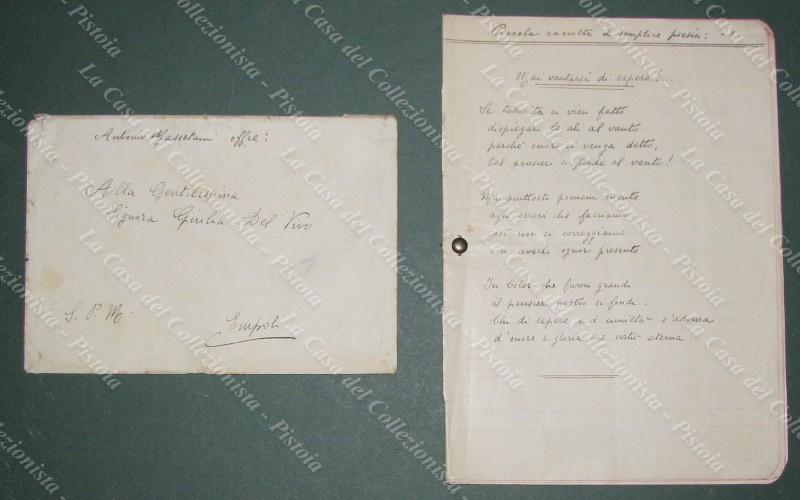 Antonio Massetani offre:
Alla Gentilissima
Signora Giulia Del Vivo
S. P. M.
Empoli
Piccola raccolta di semplice poesia:
Mai vantarsi di sapere!..
Se talvolta ci vien fatto
dispiegar le ali al vanto
perchè onore ci venga detto,
tal pensier si perde al vento!
Ma piuttosto poniam mente
agli errori che facciamo
così noi ci correggiamo
averli ognor presente.
In color che furon grandi
il pensier nostro si fondi:
Chi di sapere e d'umiltà s'adorna
d'onore e gloria sue virtù eterna.
La Casa del Collezionista - Pistoia